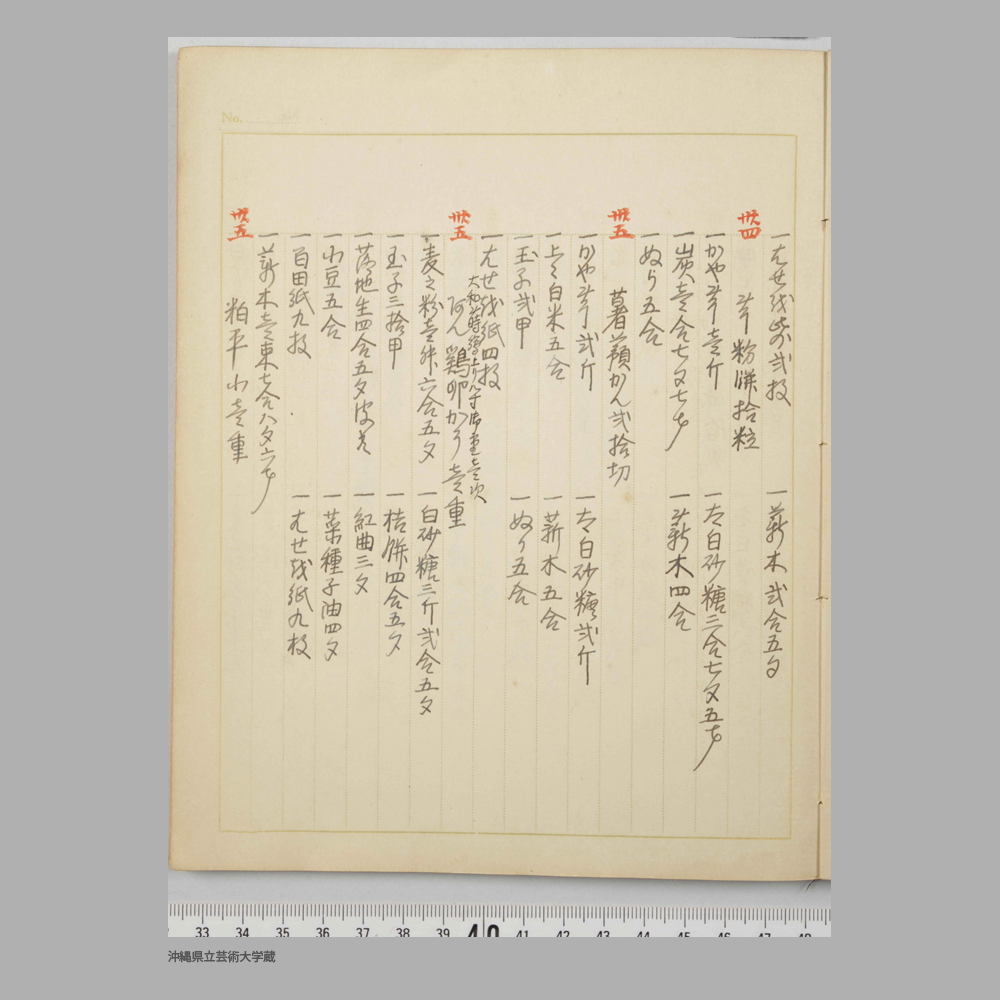 No.
一 はせを紙弐枚
一 薪木弐合五夕
卅四 芋粉餅拾粒
一 かや芋壱斤
一 太白砂糖三合七夕五才
一 炭壱合七夕七才
一 薪木四合
一 ぬり五合
卅五 薯蕷かん弐拾切
一 かや芋弐斤
一 太白砂糖弐斤
一 上々白米五合
一 薪木五合
一 玉子弐甲
一 ぬり五合
一 はせを紙四枚
卅五 鶏卵かう壱重
一 麦之粉壱舛六合五夕
一 白砂糖三斤弐合五夕
一 玉子三拾甲
一 桔餅四合五夕
一 落地生四合五夕皮共
一 紅曲三夕
一 小豆五合
一 菜種子油四夕
一 百田紙九枚
一 はせを紙九枚
一 薪木壱束七合八夕六才
卅五 粕平小壱重
33 34 35 36 37 38 39 40 41 42 43 44 45 46 47 48
沖縄県立芸術大学蔵